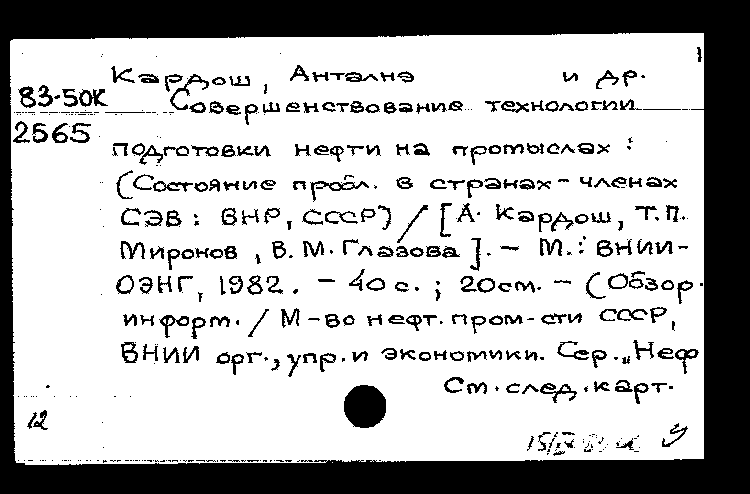 1
Кардош, Анталнэ и др.
83-50К Совершенствование технологии
2565
подготовки нефти на промыслах :
(Состояние пробл. в странах-членах
СЭВ : ВНР, СССР) / [А. Кардош, Т.П.
Миронов, В. М. Глазова]. – М. : ВНИИ-
ОЭНГ, 1982. – 40 с. ; 20см. – (Обзор.
информ. / М-во нефт. пром-сти СССР,
ВНИИ орг., упр. и экономики. Сер. „Неф
См. след. карт.
12